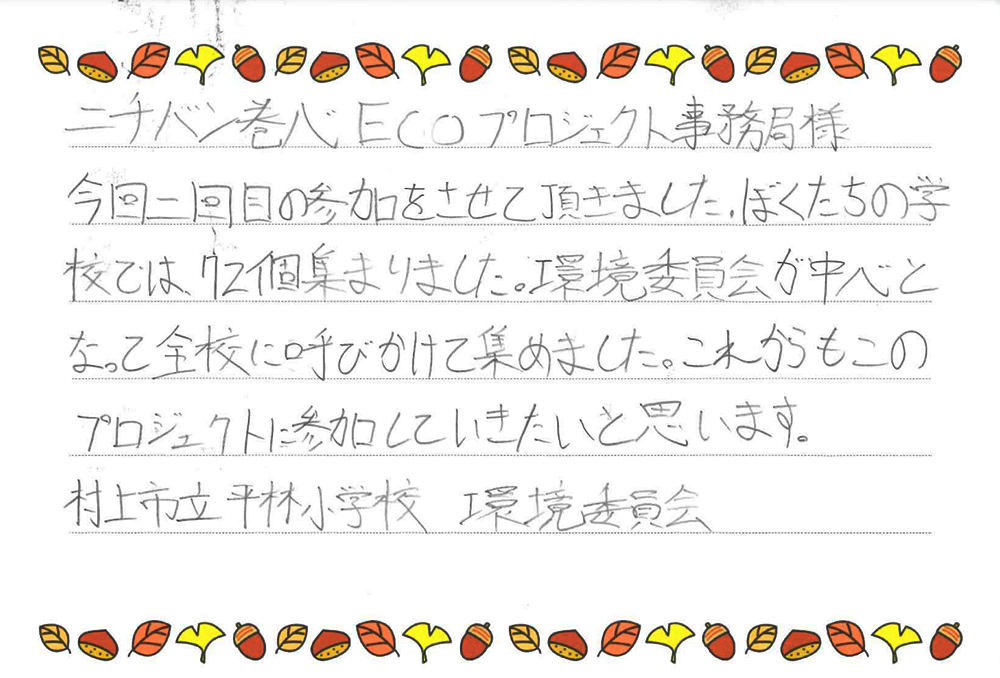 ニチバン巻心ECOプロジェクト事務局様
今回二回目の参加をさせて頂きました。ぼくたちの学
校では、72個集まりました。環境委員会が中心と
なって全校に呼びかけて集めました。これからもこの
プロジェクトに参加していきたいと思います。
村上市立平林小学校 環境委員会